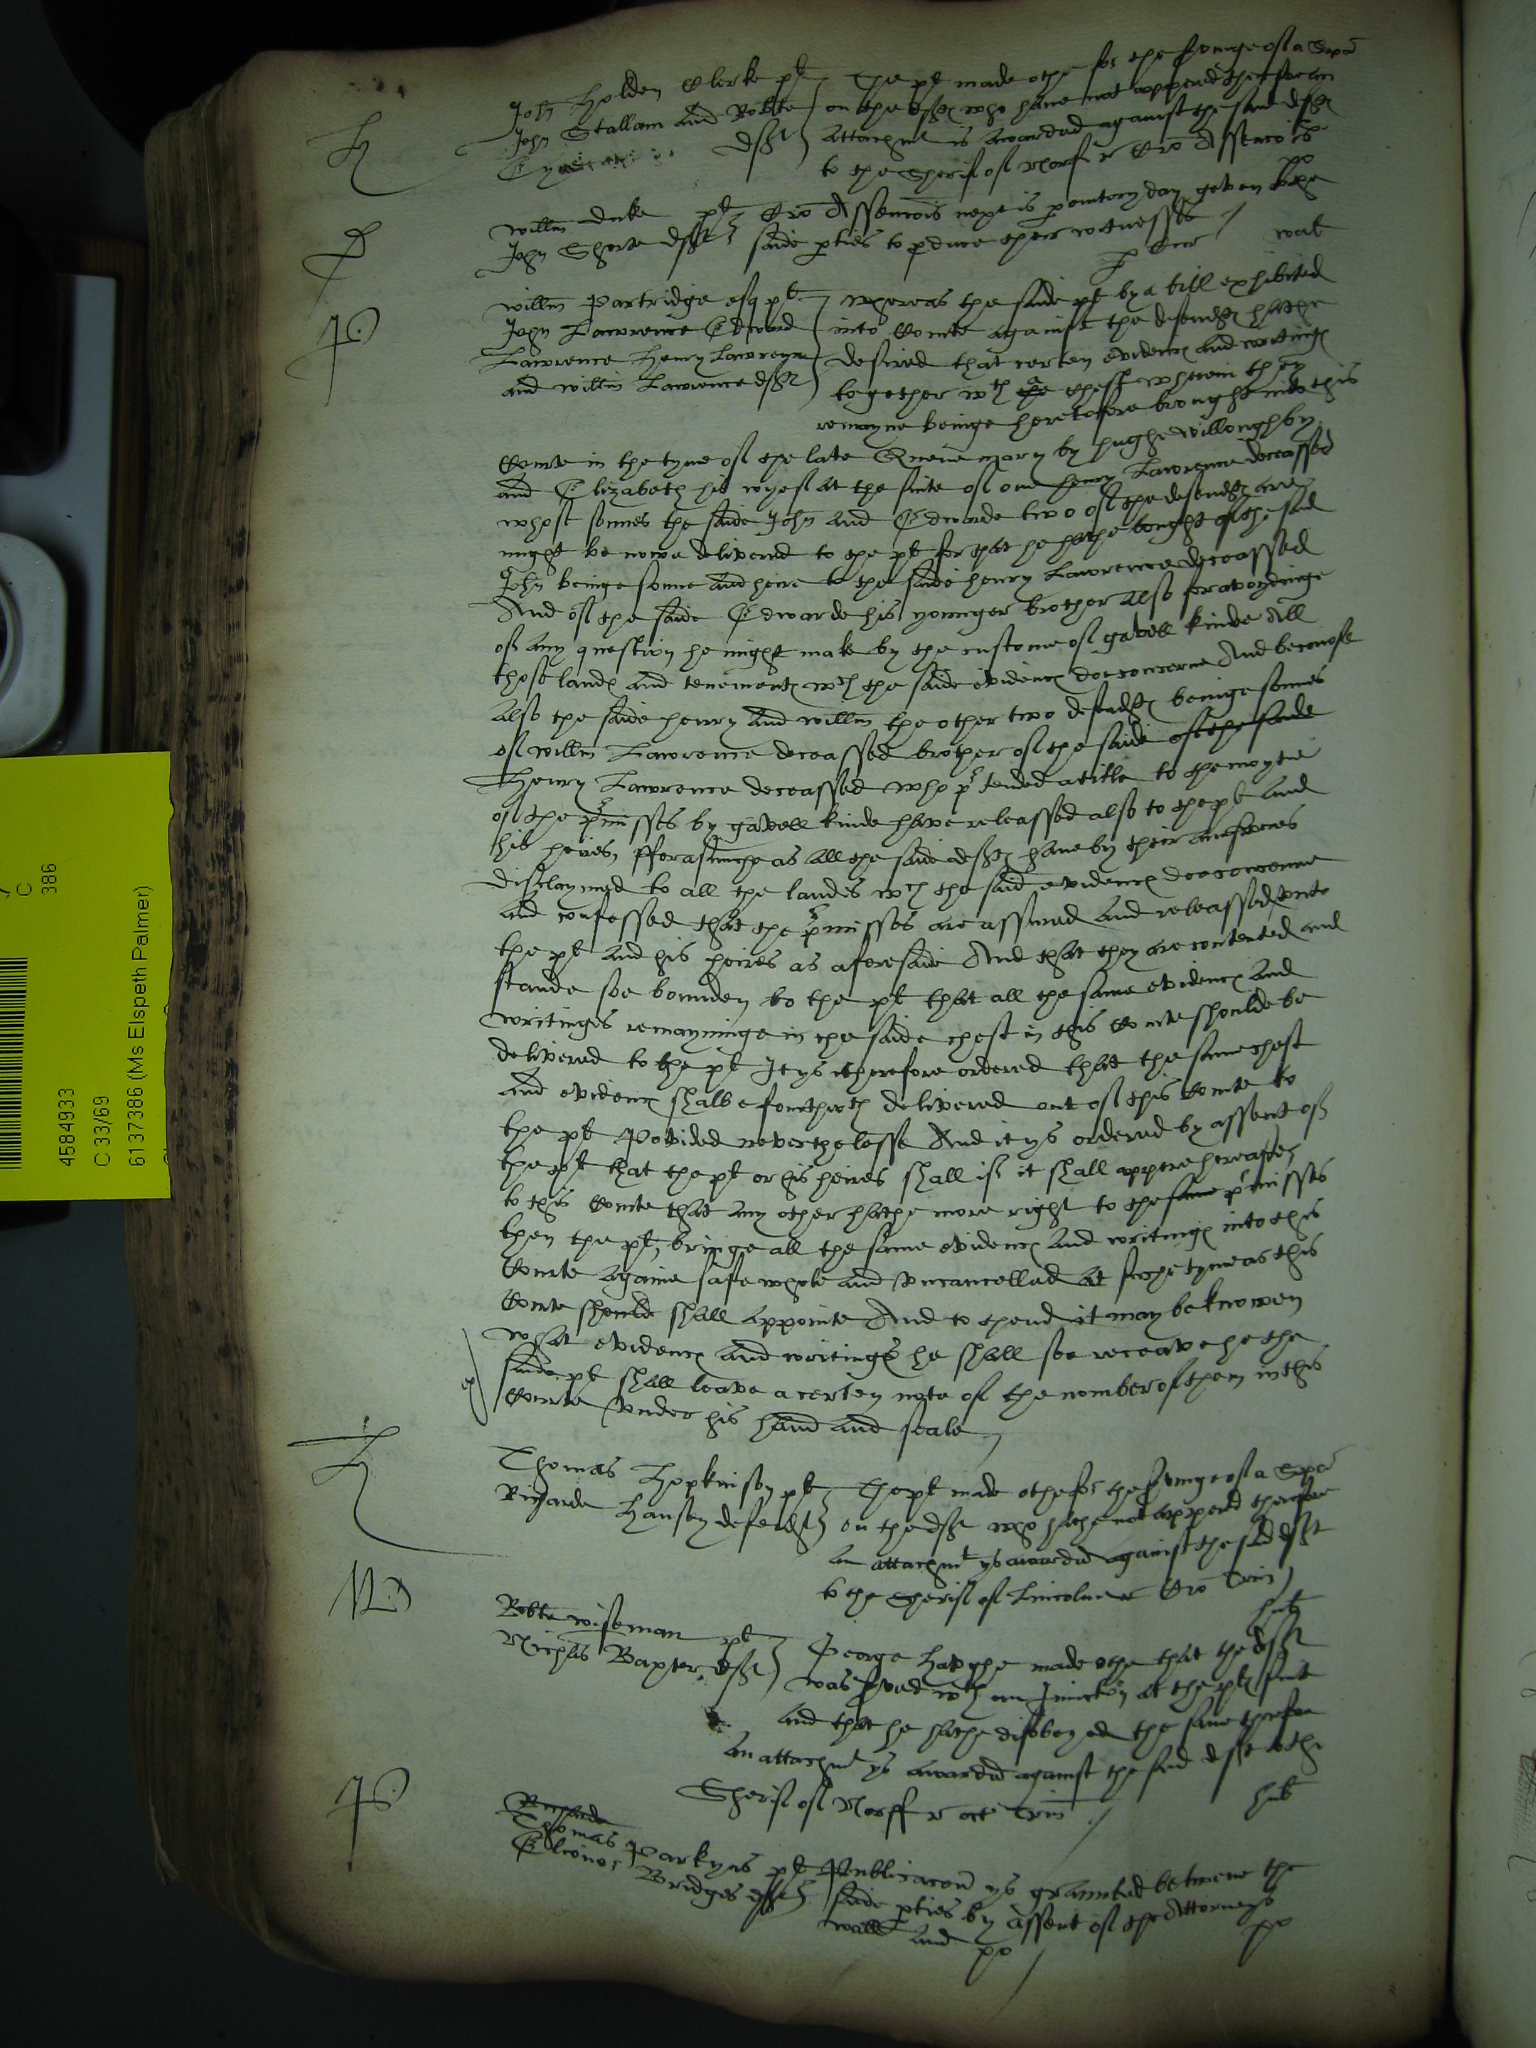 John Holden Clerke plt The plt made othe for the servinge of a Suppena
John Stallam and Robte on the defts who have not appered therfore an
deftes attachmt is awarded against the said defts
to the Sherif of Norff r Cro Assencois
hub
Willm Duke plt Cro Assencois next is peremtory day geven to the
John Shorte deft saide pties to pduce their witnesses
p Cur wat
Willm Partridge esq plt Whereas the saide plt by a bill exhibited
John Lawrence Edward into Courte against the defendts hathe
Lawrence Henry Lawrence desired that certen evidencs and writings
and Willm Lawrence defts together wth the a chest wherein they
remayne beinge heretofore brought into this
Courte in the tyme of the late Quene Mary by Hughe Willoughby
and Elizabeth his wyef at the suite of one Henry Lawrence deceassed
whose sonnes the saide John and Edwarde two of the defendts are
might be nowe delivered to the plt for that he hathe bought of the said
John beinge sonne and heire to the saide Henry Lawrence deceassed
And of the saide Edwarde his younger brother also for avoydinge
of any question he might make by the custome of gavell kinde All
those lands and tenements wch the saide evidencs doe concerne And because
also the saide Henry and Willm the other two defendts beinge sonnes
of Willm Lawrence deceassed brother of the saide of the saide
Henry Lawrence deceassed who ptended a title to the moytie
of the pmisses by gavell kinde have releassed also to the plt and
his heires, fforasmuche as all the saide defts have by their answeres
disclaymed to all the landes wch the said evidencs doe concerne
and confessed that the pmisses are assured and releassed unto
the plt and his heires as aforesaide And that they are contented and
stande soe bounden to the plt that all the same evidencs and
writinges remayninge in the saide chest in this Courte shoulde be
delivered to the plt It ys therefore ordered that the same chest
and evidencs shalbe fourthwth delivered out of this Courte to
the plt Provided neverthelesse And it ys ordered by assent of
the plt that the plt or his heires shall if it shall appere hereafter
to this Courte that any other hathe more right to the same pmisses
then the plt, bringe all the same evidencs and writings into this
Courte againe safe whole and uncancelled at suche tyme as this
Courte should shall appointe And to thend it may be knowen
what evidencs and writings he shall soe receave he the
saide plt shall leave a certen note of the nomber of them in this
Courte under his hand and seale
Thomas Hopkinson plt The plt made othe for the servinge of a Suppena
Richarde Hanson defendt on the deft who hathe not appered therfore
an attachmt ys awarded against the said deft
to the Sherif of Lincolne r Cro Trin
hub
Robte Wiseman plt George Hawghe made othe that the deft
Nichas Baxter deft was served wth an Iniunction at the plts suit
and that he hathe disobeyed the same therfore
an attachmt ys awarded against the said deft to the
Sherif of Norff r oct Trin
hub
Richarde
Thomas Parkyns plt Publicacon ys graunted betwene the
Elionor Bridges deft saide pties by assent of the Attorneys
Wall and po
po
4584933
C 33/69
6137386 (Ms Elspeth Palmer)
C
386